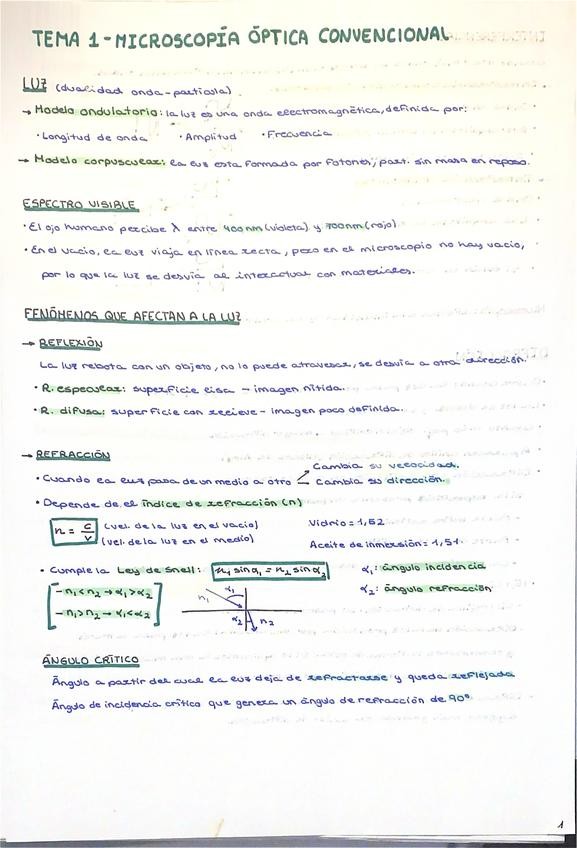 TEMA 1 - MICROSCOPÍA ÓPTICA CONVENCIONAL
LUZ (dualidad onda-partícula)
→ Modelo ondulatorio: la luz es una onda electromagnética, definida por:
· Longitud de onda · Amplitud · Frecuencia
→ Modelo corpuscular: la luz esta formada por fotones, part. sin masa en reposo.
ESPECTRO VISIBLE
· El ojo humano percibe λ entre 400nm (violeta) y 700nm (rojo)
· En el vacío, la luz viaja en línea recta, pero en el microscopio no hay vacío,
por lo que la luz se desvía al interactuar con materiales.
FENÓMENOS QUE AFECTAN A LA LUZ
→ REFLEXIÓN
La luz rebota con un objeto, no lo puede atravesar, se desvía a otra dirección.
· R. especular: superficie lisa - imagen nítida.
· R. difusa: superficie con relieve - imagen poco definida.
→ REFRACCIÓN
Cambia su velocidad.
· Cuando la luz pasa de un medio a otro Cambia su dirección.
· Depende de el índice de refracción (n)
n = c/v (vel. de la luz en el vacío) Vidrio = 1,52
(vel. de la luz en el medio) Aceite de inmersión = 1,51
· Cumple la Ley de Snell: n₁ sinα₁ = n₂ sinα₂ α₁: ángulo incidencia
- n₁ < n₂ → α₁ > α₂ n₁ α₁ α₂: ángulo refracción
- n₁ > n₂ → α₁ < α₂ α₂ n₂
ÁNGULO CRÍTICO
Ángulo a partir del cual la luz deja de refractarse y queda reflejada
Ángulo de incidencia crítico que genera un ángulo de refracción de 90º
1